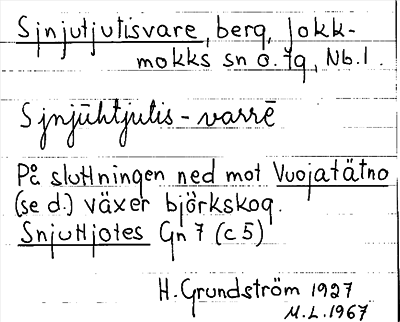 Sjnjutjutisvare, berg, Jokk-
mokks sn o. 7g, Nb. l.
Sjnjūhtjutis-varrē
På sluttningen ned mot Vuojatätno
(se d.) växer björkskog.
Snjuttjotes Gn 7 (c 5)
H. Grundström 1927
M.L. 1967